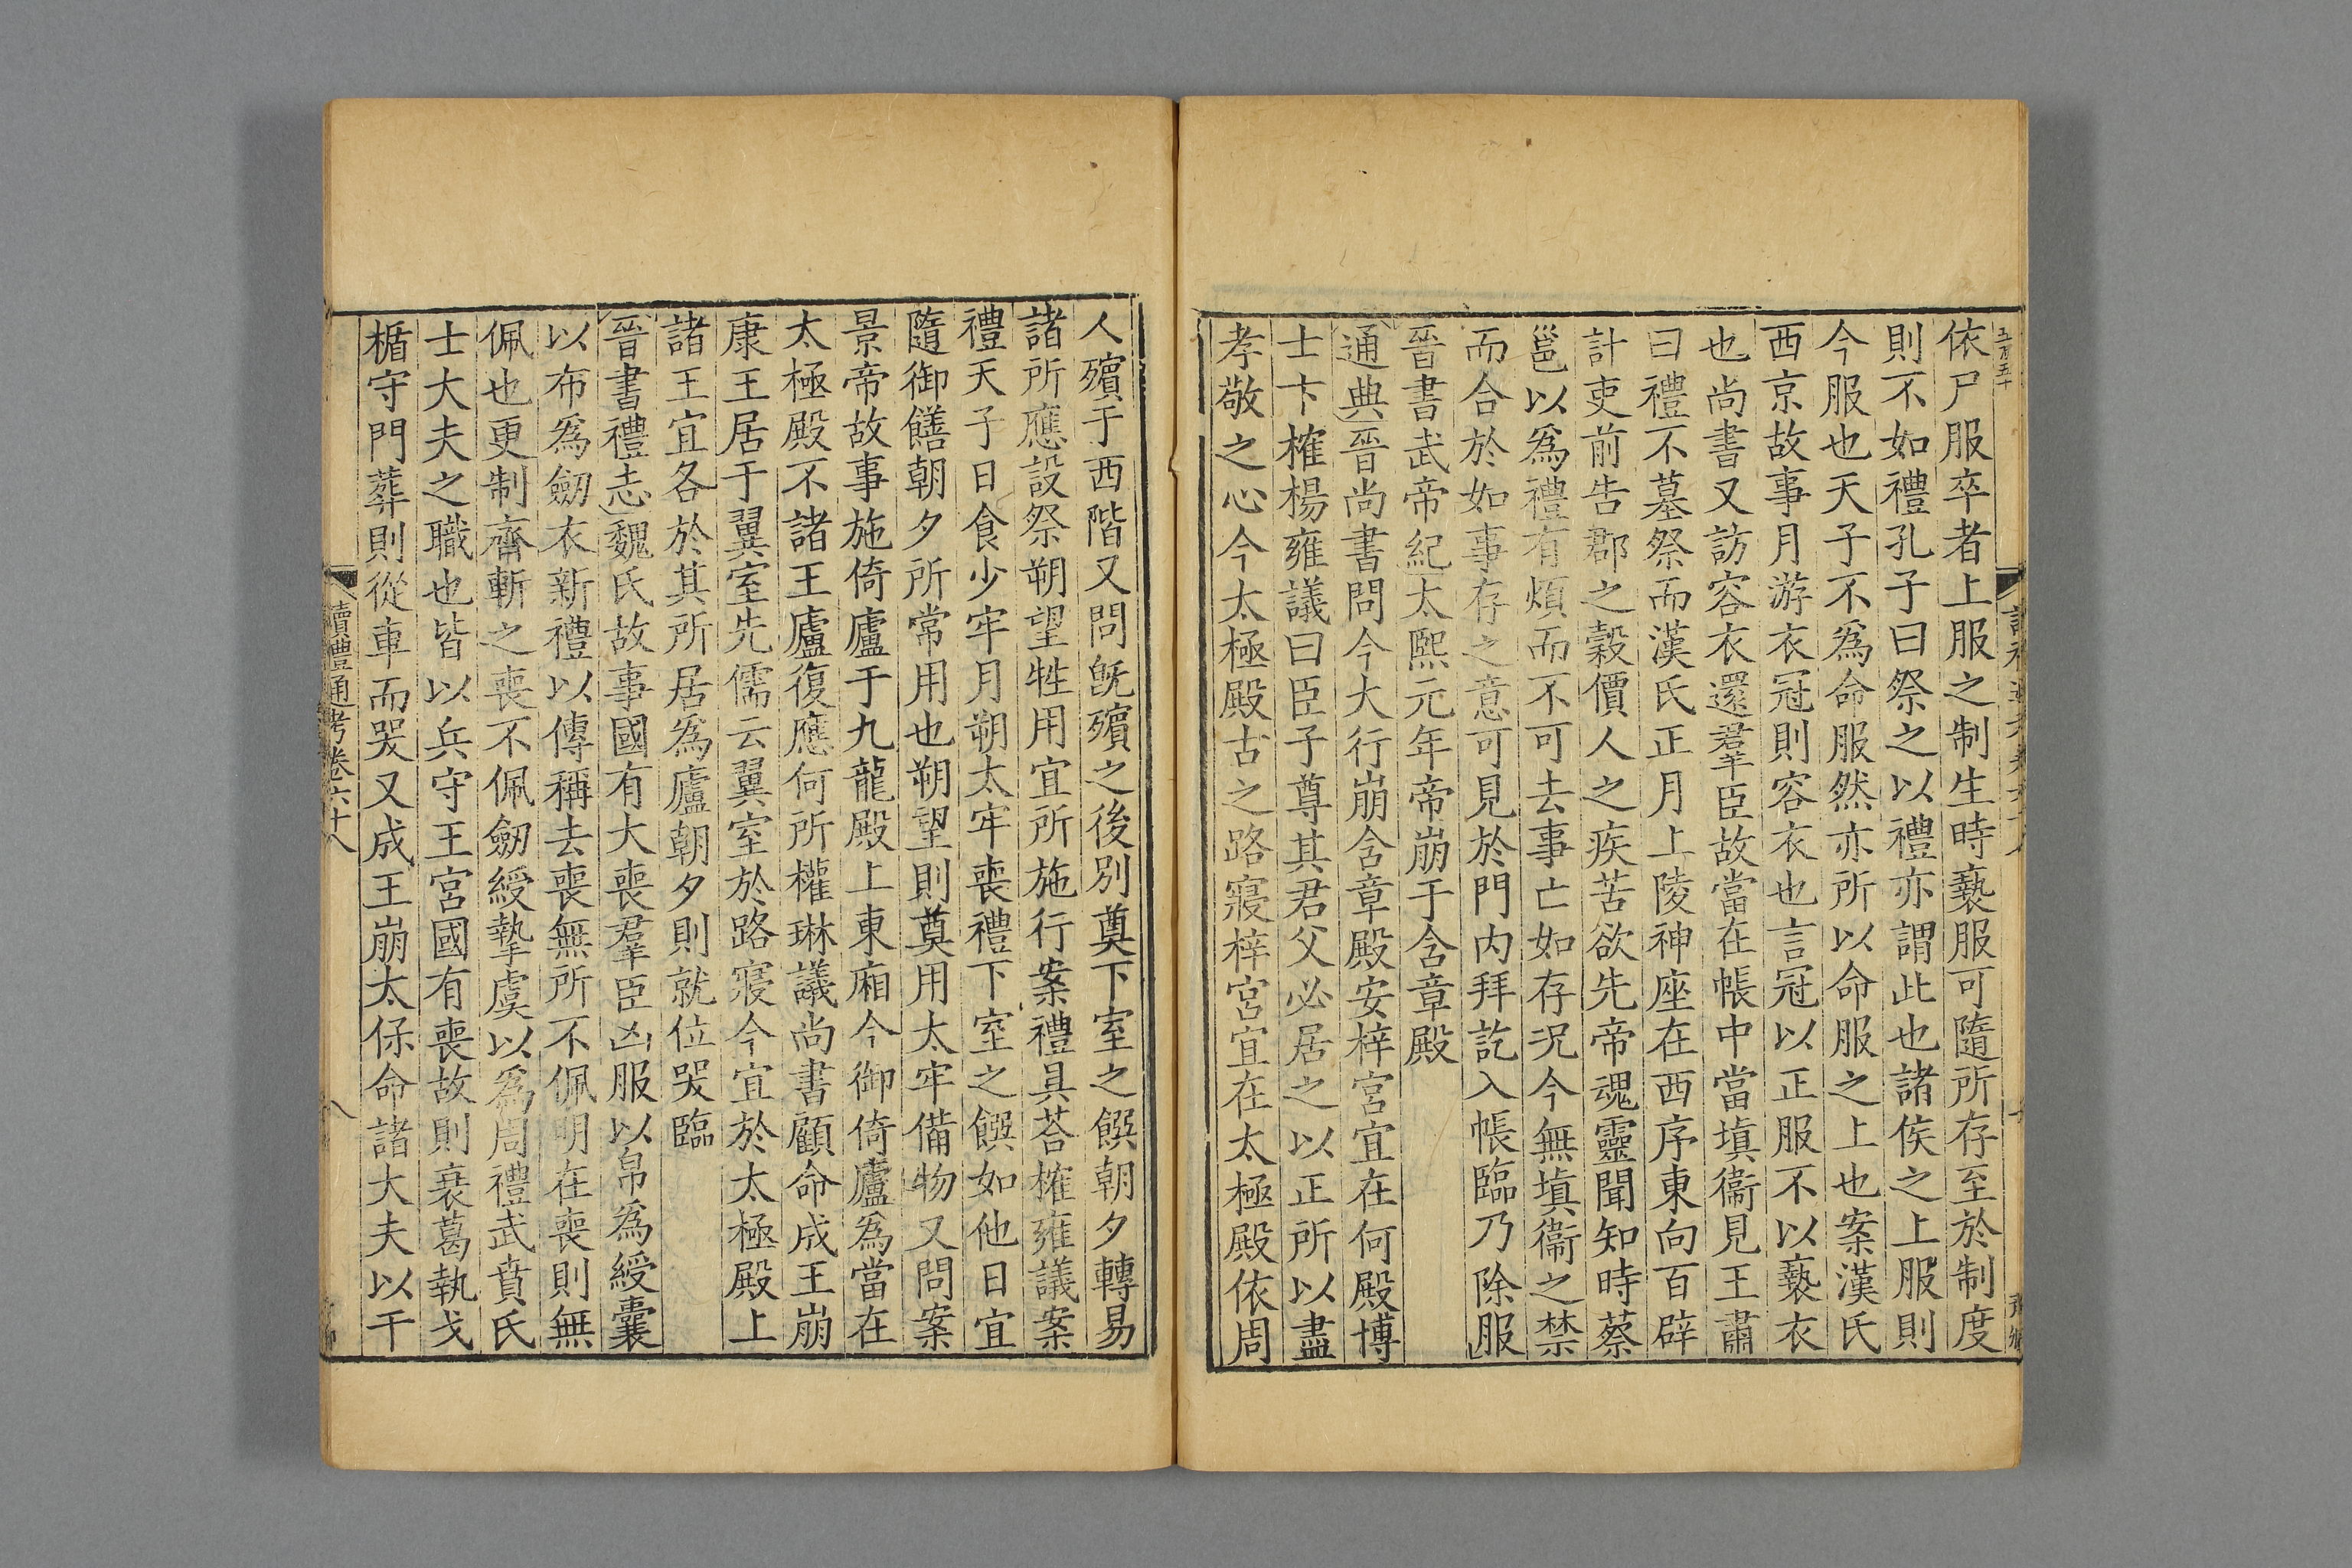 依尸服卒者上服之制生時褻服可隨所存至於制度
則不如禮孔子曰祭之以禮亦謂此也諸侯之上服則
今服也天子不爲命服然亦所以命服之上也案漢氏
西京故事月游衣冠則容衣也言冠以正服不以褻衣
也尚書又訪容衣還羣臣故當在帳中當塡衞見王肅
曰禮不墓祭而漢氏正月上陵神座在西序東向百辟
計吏前告郡之穀價人之疾苦欲先帝魂靈聞知時蔡
邕以爲禮有煩而不可去事亡如存況今無塡衞之禁
而合於如事存之意可見於門内拜訖入帳臨乃除服
晉書武帝紀太熙元年帝崩于含章殿
通典晉尚書問今大行崩含章殿安梓宮宜在何殿博
士卞搉楊雍議曰臣子尊其君父必居之以正所以盡
孝敬之心今太極殿古之路寢梓宮宜在太極殿依周
人殯于西階又問旣殯之後別奠下室之饌朝夕轉易
諸所應設祭朔望牲用宜所施行案禮具荅搉雍議案
禮天子日食少牢月朔太牢喪禮下室之饌如他日宜
隨御饍朝夕所常用也朔望則奠用太牢備物又問案
景帝故事施倚廬于九龍殿上東廂今御倚廬爲當在
太極殿不諸王廬復應何所權琳議尚書顧命成王崩
康王居于翼室先儒云翼室於路寢今宜於太極殿上
諸王宜各於其所居爲廬朝夕則就位哭臨
晉書禮志魏氏故事國有大喪羣臣凶服以帛爲綬囊
以布爲劒衣新禮以傳稱去喪無所不佩明在喪則無
佩也更制齊斬之喪不佩劒綬摯虞以爲周禮武賁氏
士大夫之職也皆以兵守王宮國有喪故則衰葛執戈
楯守門葬則從車而哭又成王崩太保命諸大夫以干
讀禮通考卷六十八
八